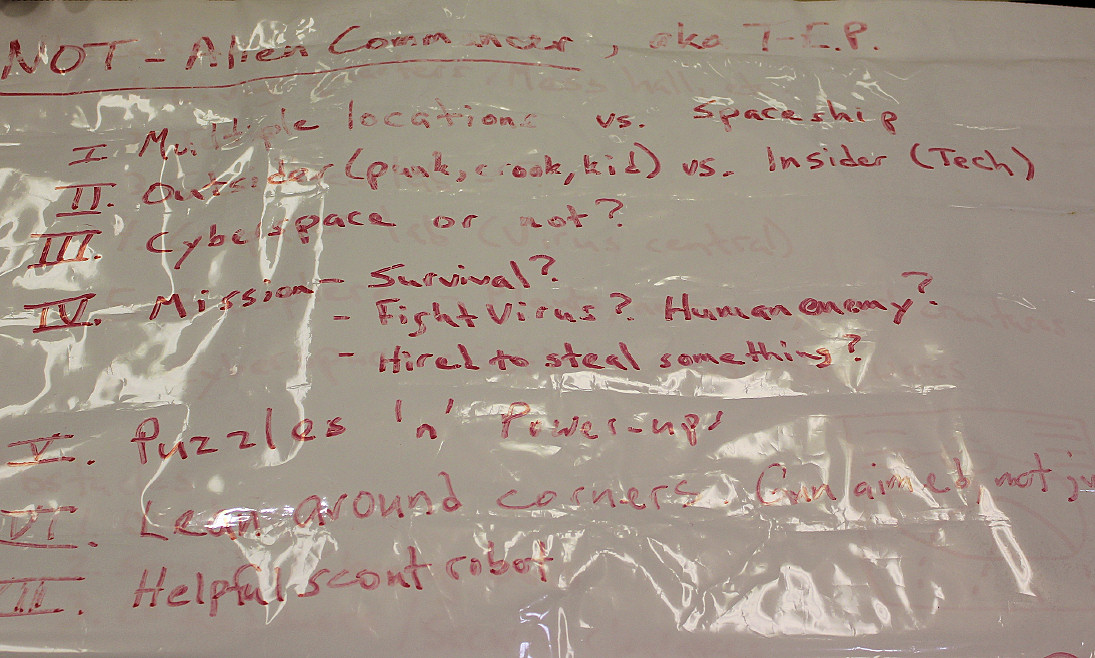 NOT - Alien Commander, aka T.F.P.
I. Multiple locations vs. Spaceship
II. Outsider (punk, crook, kid) vs. Insider (Tech)
III. Cyberspace or not?
IV. Mission - Survival?
- Fight Virus? Human enemy?
- Hired to steal something?
V. Puzzles 'n' Power-ups
VI. Lean around corners. Gun aimed, not
VII. Helpful scout robot